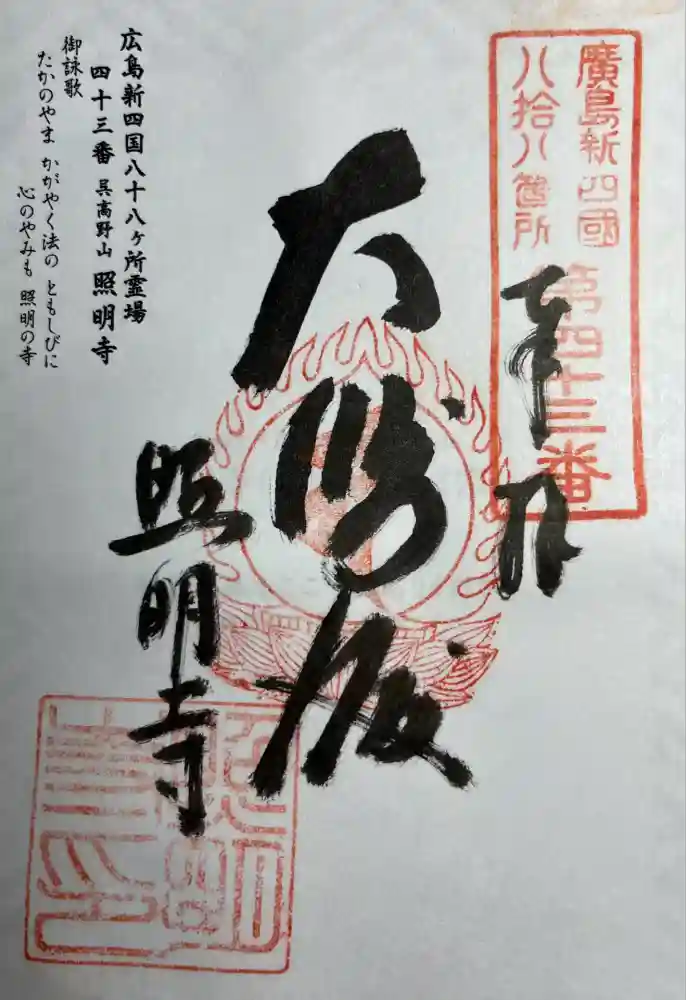 廣島新四國
八拾八箇所
第四十三番
奉拝
大師殿
照明寺
広島新四国八十八ヶ所霊場
四十三番 呉高野山 照明寺
御詠歌
たかのやま かがやく法の ともしびに
心のやみも 照明の寺